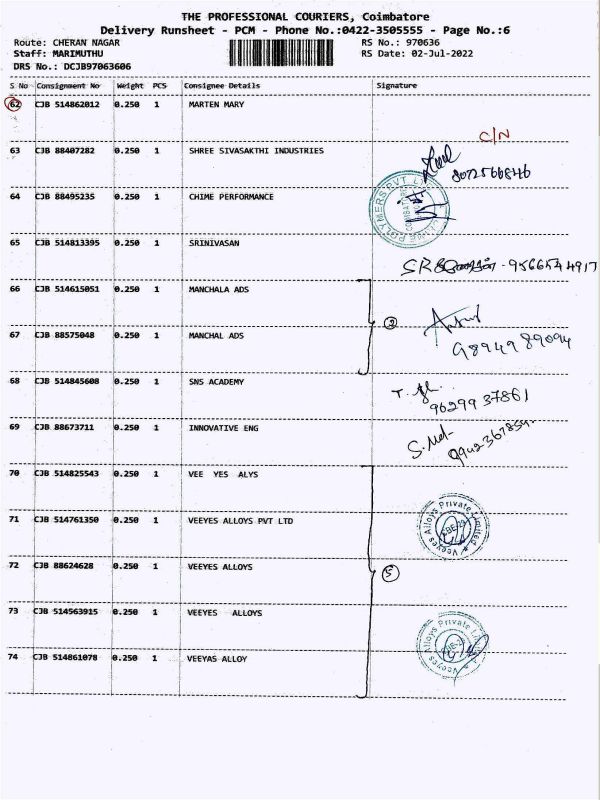 THE PROFESSIONAL COURIERS, Coimbatore
Delivery Runsheet - PCM - Phone No.:0422-3505555 - Page No.:6
Route: CHERAN NAGAR RS No.: 970636
Staff: MARIMUTHU RS Date: 02-Jul-2022
DRS No.: DCJB97063606
S No Consignment No Weight PCS Consignee Details Signature
62 CJB 514862012 0.250 1 MARTEN MARY
C/N
63 CJB 88407282 0.250 1 SHREE SIVASAKTHI INDUSTRIES
8072566846
64 CJB 88495235 0.250 1 CHIME PERFORMANCE
POLYMERS PVT
65 CJB 514813395 0.250 1 SRINIVASAN
9566544917
66 CJB 514615051 0.250 1 MANCHALA ADS
2
67 CJB 88575048 0.250 1 MANCHAL ADS
9894989094
68 CJB 514845608 0.250 1 SNS ACADEMY
9629937861
69 CJB 88673711 0.250 1 INNOVATIVE ENG
70 CJB 514825543 0.250 1 VEE YES ALYS
71 CJB 514761350 0.250 1 VEEYES ALLOYS PVT LTD
Veeyes Alloys Private Limited
72 CJB 88624628 0.250 1 VEEYES ALLOYS
5
73 CJB 514563915 0.250 1 VEEYES ALLOYS
Veeyes Alloys Private
74 CJB 514861078 0.250 1 VEEYAS ALLOY